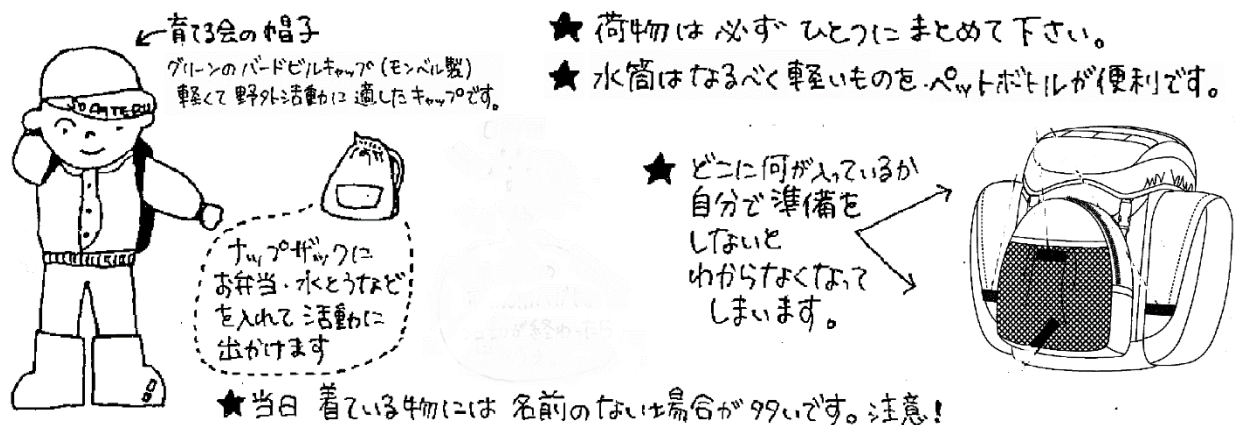 育てる会の帽子
グリーンのバードビルキャップ(モンベル製)
軽くて野外活動に適したキャップです。
SODATERU
ナップザックに
お弁当・水とうなど
を入れて活動に
出かけます
★ 荷物は必ずひとつにまとめて下さい。
★ 水筒はなるべく軽いものを.ペットボトルが便利です。
★ どこに何が入っているか
自分で準備を
しないと
わからなくなって
しまいます。
★当日 着ている物には 名前のない場合が多いです。注意!